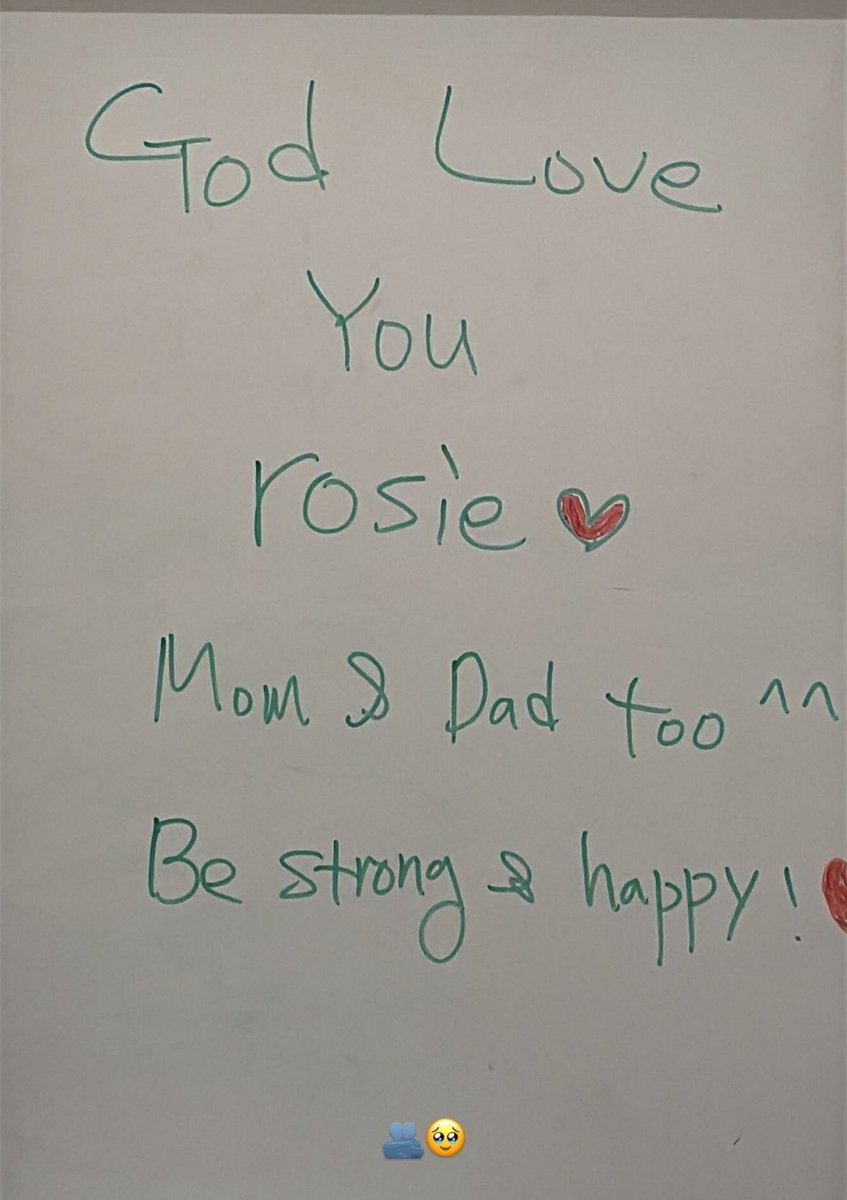 God Love
You
rosie ♥
Mom & Dad too ^^
Be strong & happy! ♥
🫂🥹